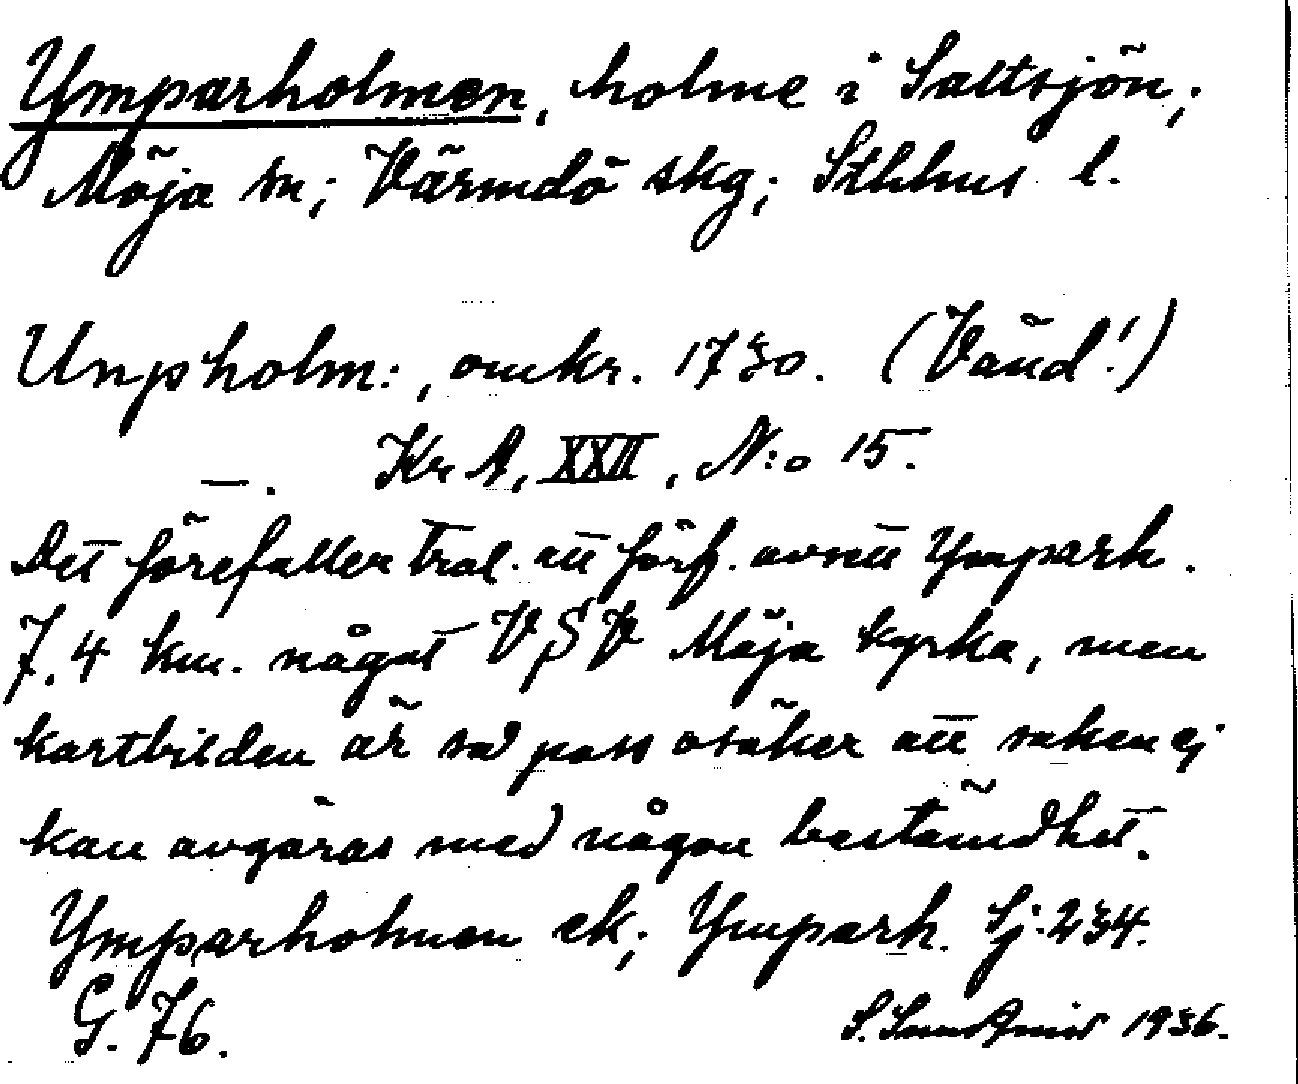 Ymparholmen, holme i Saltsjön;
Möja sn; Värmdö skg; Sthhus l.
Unpsholm:, omkr. 1730. (Vänd!)
—. KrA, XXII, N:o 15.
Det förefaller trol. att förf. avsett Ympark.
7.4 km. något VSV Möja kyrka, men
kartbilden är så pass osäker att saken ej
kan avgöras med någon bestämdhet.
Ymparholmen ek; Ympark. Sj. 234.
G. 76.
S. 1936.